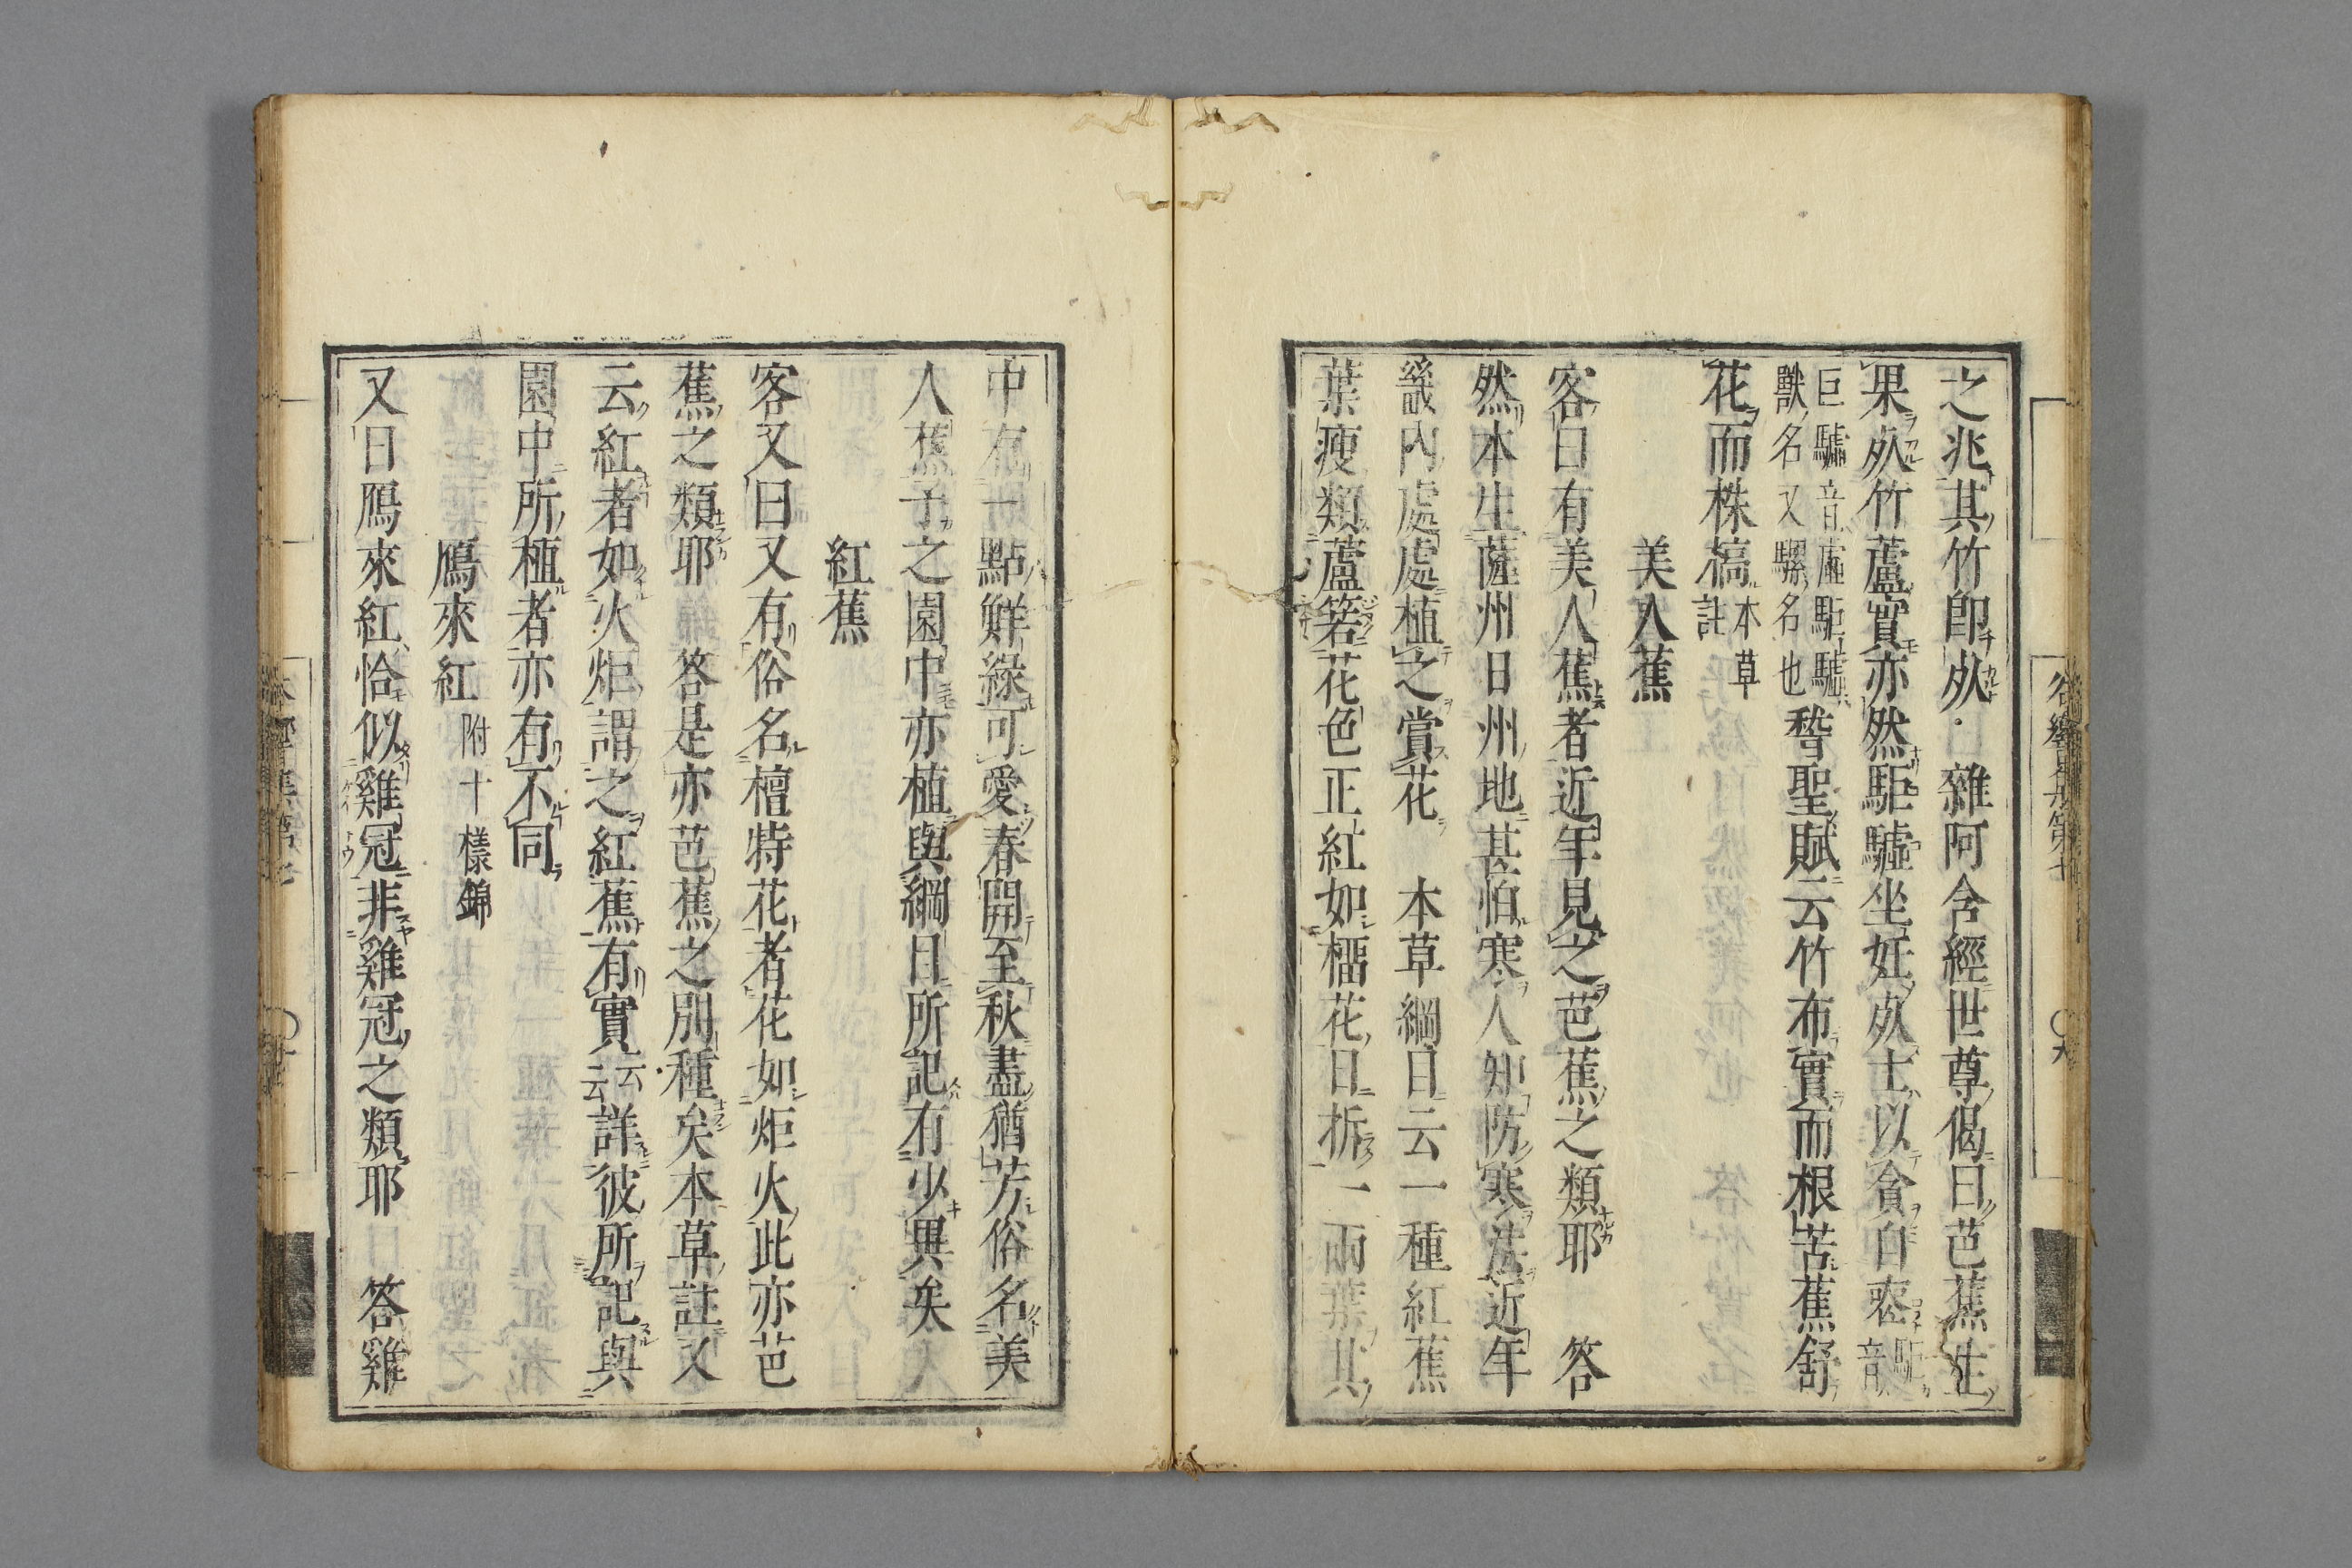 之兆其竹即死雜阿含經世尊偈曰芭蕉生
果死竹蘆實亦然駏驉坐妊死士以貪自喪駏音
巨驉音虛駏驉
獸名又騾名也
嵆聖賦云竹布實而根苦蕉舒
花而株槁本草註
美人蕉
客曰有美人蕉者近年見之芭蕉之類耶 答
然本生薩州日州地甚怕寒人知防寒法近年
畿內處處植之賞花 本草綱目云一種紅蕉
葉瘦類蘆箬花色正紅如榴花日拆一兩葉其
中有一點鮮綠可愛春開至秋盡猶芳俗名美
人蕉予之園中亦植與綱目所記有少異矣
紅蕉
客又曰又有俗名檀特花者花如炬火此亦芭
蕉之類耶 答是亦芭蕉之別種矣本草註又
云紅者如火炬謂之紅蕉有實云云詳彼所記與
園中所植者亦有不同
鴈來紅附十樣錦
又曰鴈來紅恰似雞冠非雞冠之類耶 答雞